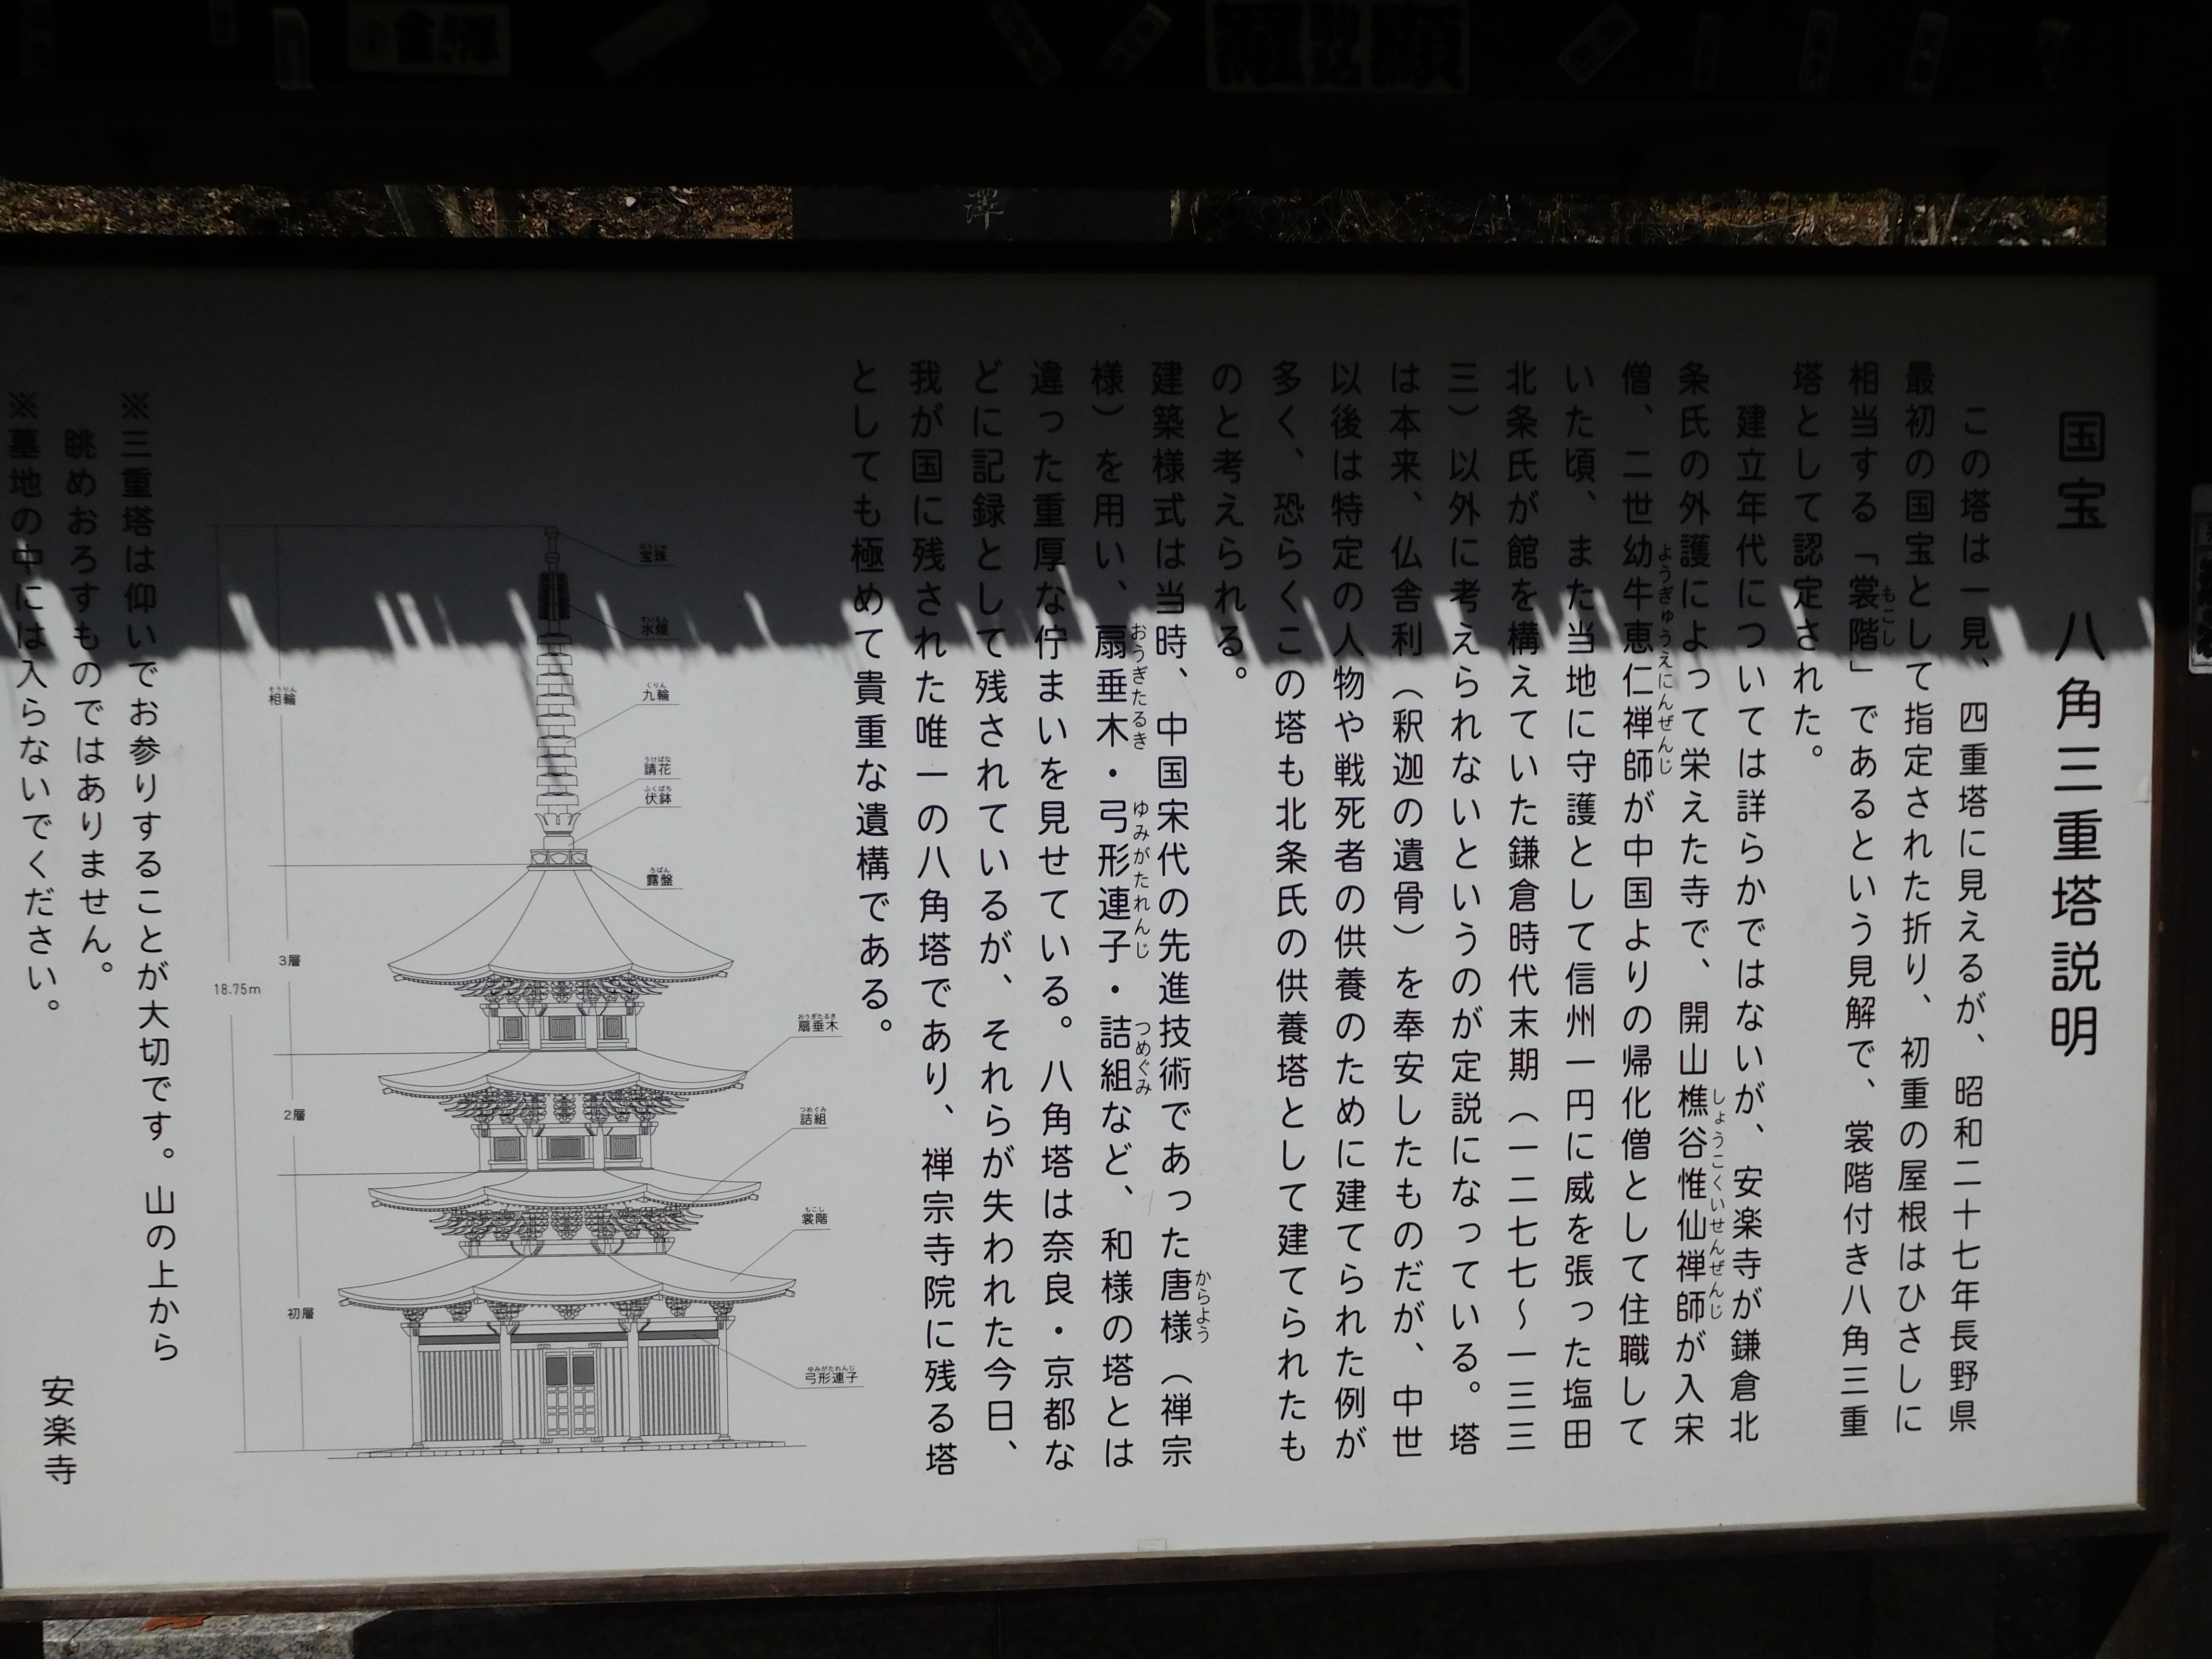 国宝　八角三重塔説明
この塔は一見、四重塔に見えるが、昭和二十七年長野県
最初の国宝として指定された折り、初重の屋根はひさしに
相当する「裳階」であるという見解で、裳階付き八角三重
もこし
塔として認定された。
建立年代については詳らかではないが、安楽寺が鎌倉北
条氏の外護によって栄えた寺で、開山樵谷惟仙禅師が入宋
しょうこくいせんぜんじ
僧、二世幼牛恵仁禅師が中国よりの帰化僧として住職して
ようぎゅうえにんぜんじ
いた頃、また当地に守護として信州一円に威を張った塩田
北条氏が館を構えていた鎌倉時代末期（一二七七～一三三
三）以外に考えられないというのが定説になっている。塔
は本来、仏舎利（釈迦の遺骨）を奉安したものだが、中世
以後は特定の人物や戦死者の供養のために建てられた例が
多く、恐らくこの塔も北条氏の供養塔として建てられたも
のと考えられる。
建築様式は当時、中国宋代の先進技術であった唐様（禅宗
からよう
様）を用い、扇垂木・弓形連子・詰組など、和様の塔とは
おうぎたるき
ゆみがたれんじ
つめぐみ
違った重厚な佇まいを見せている。八角塔は奈良・京都な
どに記録として残されているが、それらが失われた今日、
我が国に残された唯一の八角塔であり、禅宗寺院に残る塔
としても極めて貴重な遺構である。
ほうじゅ
宝珠
すいえん
水煙
くりん
九輪
うけばな
請花
ふくばち
伏鉢
ろばん
露盤
おうぎたるき
扇垂木
つめぐみ
詰組
もこし
裳階
ゆみがたれんじ
弓形連子
そうりん
相輪
3層
2層
初層
18.75m
※三重塔は仰いでお参りすることが大切です。山の上から
眺めおろすものではありません。
※墓地の中には入らないでください。
安楽寺
澤